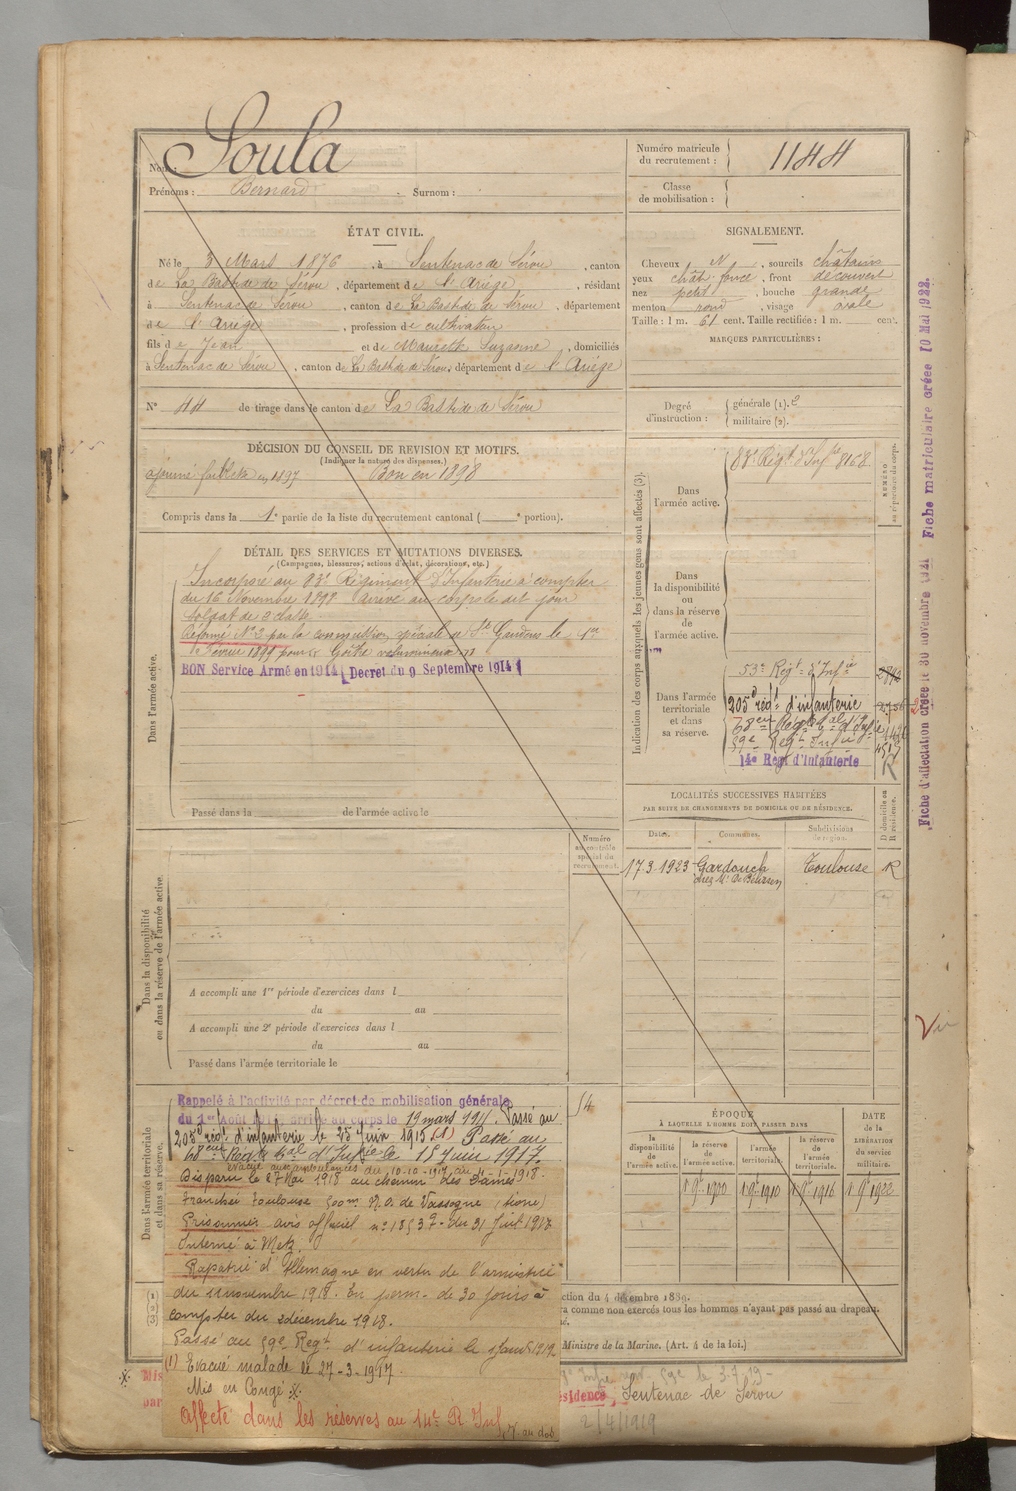 Nom : Soula
Prénoms : Bernard Surnom :
Numéro matricule du recrutement : 1144
Classe de mobilisation :
ÉTAT CIVIL.
Né le 3 Mars 1876, à Sentenac de Sérou, canton
de La Bastide de Sérou, département de l'Ariège, résidant
à Sentenac de Sérou, canton de La Bastide de Sérou, département
de l'Ariège, profession de cultivateur
fils de Jean et de Suzanne, domiciliés
à Sentenac de Sérou, canton de La Bastide de Sérou, département de l'Ariège
N° 44 de tirage dans le canton de La Bastide de Sérou
SIGNALEMENT.
Cheveux N, sourcils châtains
yeux chât. foncé, front découvert
nez petit, bouche grande
menton rond, visage ovale
Taille : 1 m. 61 cent. Taille rectifiée : 1 m. cent.
MARQUES PARTICULIÈRES :
Degré d'instruction : générale (1). 2
militaire (2).
DÉCISION DU CONSEIL DE REVISION ET MOTIFS.
(Indiquer la nature des dispenses.)
ajourné faiblesse en 1897 Bon en 1898
Compris dans la 1e partie de la liste du recrutement cantonal ( e portion).
DÉTAIL DES SERVICES ET MUTATIONS DIVERSES.
(Campagnes, blessures, actions d'éclat, décorations, etc.)
Dans l'armée active.
Incorporé au 83e Régiment d'Infanterie à compter
du 16 Novembre 1898 Arrivé au corps le dit jour
soldat de 2e classe
Réformé N° 2 par la commission spéciale de St Gaudens le 1er
Février 1899 pour Goître volumineux
BON Service Armé en 1914 (Decret du 9 Septembre 1914)
Passé dans la de l'armée active le
Indication des corps auxquels les jeunes gens sont affectés (3).
NUMÉRO au répertoire du corps.
Dans l'armée active.
83e Régt d'Infie 8168
Dans la disponibilité ou dans la réserve de l'armée active.
Dans l'armée territoriale et dans sa réserve.
53e Régt d'Infie
205e régt d'infanterie
68eme Régt tal d'Infie
59e Regt Infie
14e Regt d'Infanterie R
LOCALITÉS SUCCESSIVES HABITÉES
PAR SUITE DE CHANGEMENTS DE DOMICILE OU DE RÉSIDENCE.
Dates. Communes. Subdivisions de région. D domicile ou R résidence.
17.3.1923 Gardouch Toulouse R
chez Mr De
Dans la disponibilité ou dans la réserve de l'armée active.
Numéro au contrôle spécial du recrutement.
A accompli une 1re période d'exercices dans l
du au
A accompli une 2e période d'exercices dans l
du au
Passé dans l'armée territoriale le
Dans l'armée territoriale et dans sa réserve.
Rappelé à l'activité par décret de mobilisation générale
du 1er Août 1914 arrivé au corps le 19 mars 1915. Passé au
205e régt d'infanterie le 25 Juin 1915 (1) Passé au
68eme Regt tal d'Infie le 15 juin 1917
évacué aux ambulances du 10-10-1917 au 4-1-1918.
Disparu le 27 Mai 1918 au chemin des Dames
Tranchée Toulouse 500m N.O. de Vassogne (Aisne)
Prisonnier avis officiel n° 18537 du 31 Juil. 1918
Interné à Metz.
Rapatrié d'Allemagne en vertu de l'armistice
du 11 novembre 1918. En perm. de 30 jours à
compter du 2 décembre 1918.
Passé au 59e Regt d'infanterie le 1919
(1) Evacué malade le 27-3-1917.
Mis en Congé
Affecté dans les réserves au 14e R Inf
54
ÉPOQUE
À LAQUELLE L'HOMME DOIT PASSER DANS
la disponibilité de l'armée active. la réserve de l'armée active. l'armée territoriale. la réserve de l'armée territoriale.
DATE de la LIBÉRATION du service militaire.
1 9bre 1900 1 9bre 1910 1 9bre 1916 1 9bre 1922
ction du 4 décembre 1889.
ra comme non exercés tous les hommes n'ayant pas passé au drapeau.
Ministre de la Marine. (Art. 4 de la loi.)
Mis
par
ésidence, Sentenac de Sérou
2/4/1919
Fiche d'affectation créée le 30 novembre 1921 Fiche matriculaire créée 10 Mai 1922.
Vu